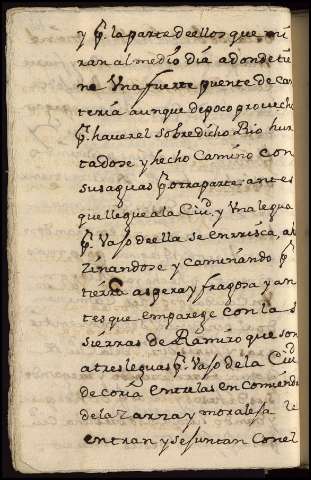 y p.r la parte de ellos que mi
ran al medio dia adonde tie
ne Una fuerte puente de can
teria aunque de poco provecho
p.r haver el sobredicho Rio hur
tadose y hecho Camino con
sus aguas p.r otra parte. antes
que llegue a la Ciu.d y Una legua
p.r Vaso de ella se enrrisca, a
zinandose y caminando p.r
tierra aspera y fragosa y an
tes que emparege con las
sierras de Ramiro que son
a tres leguas p.r Vaso de la Ciu.d
de coria Entre las encomienda
de la zarza y moralesa se
entran y se juntan Con el